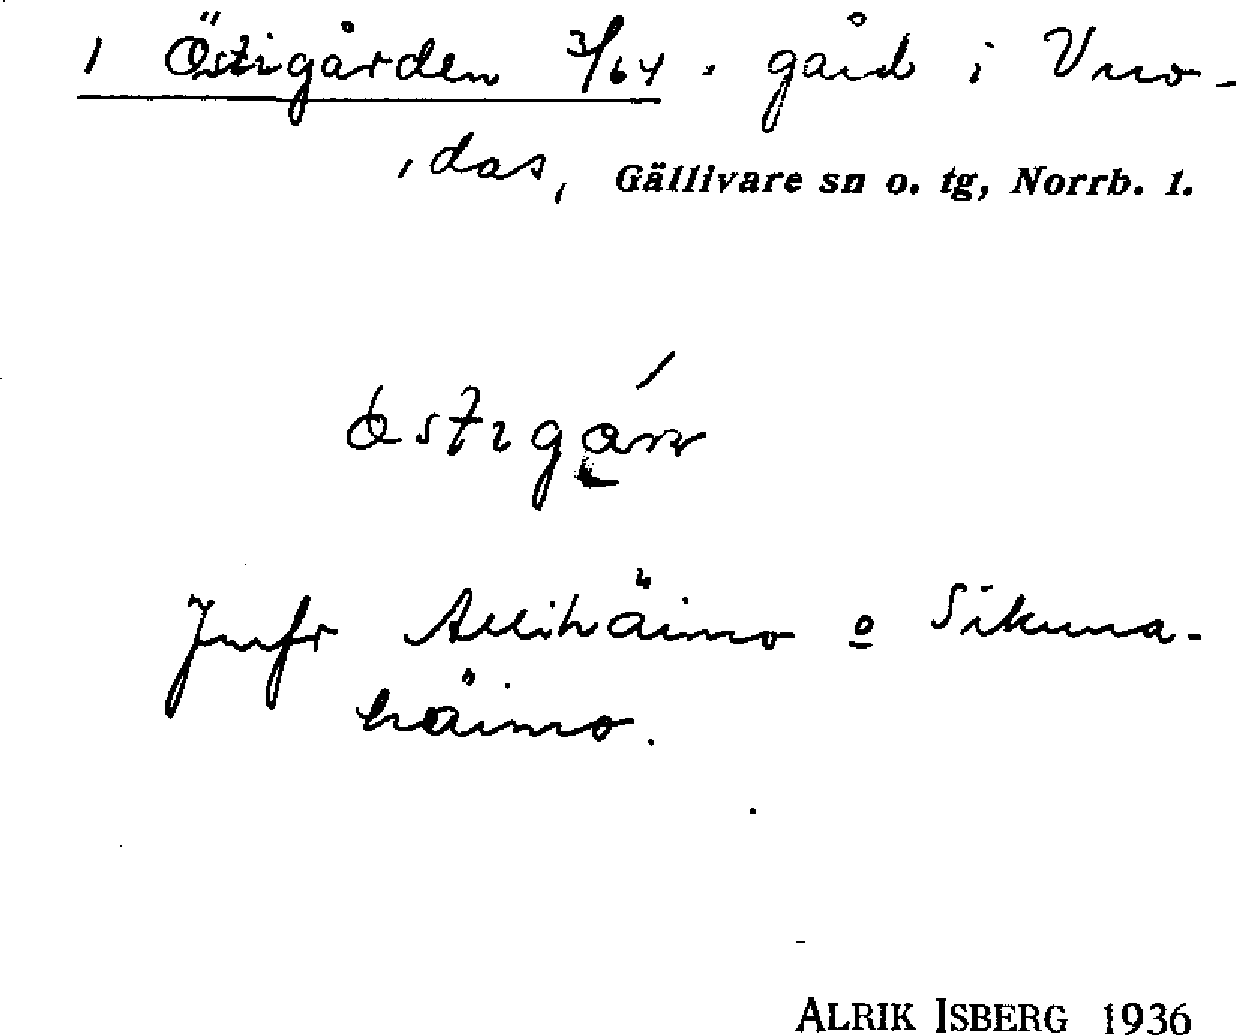 1 Östigården 3/64. gård i Vuo-
das, Gällivare sn o. tg, Norrb. l.
östigá̱rn
Jmfr Allihäimo o Sikuna-
häimo.
ALRIK ISBERG 1936